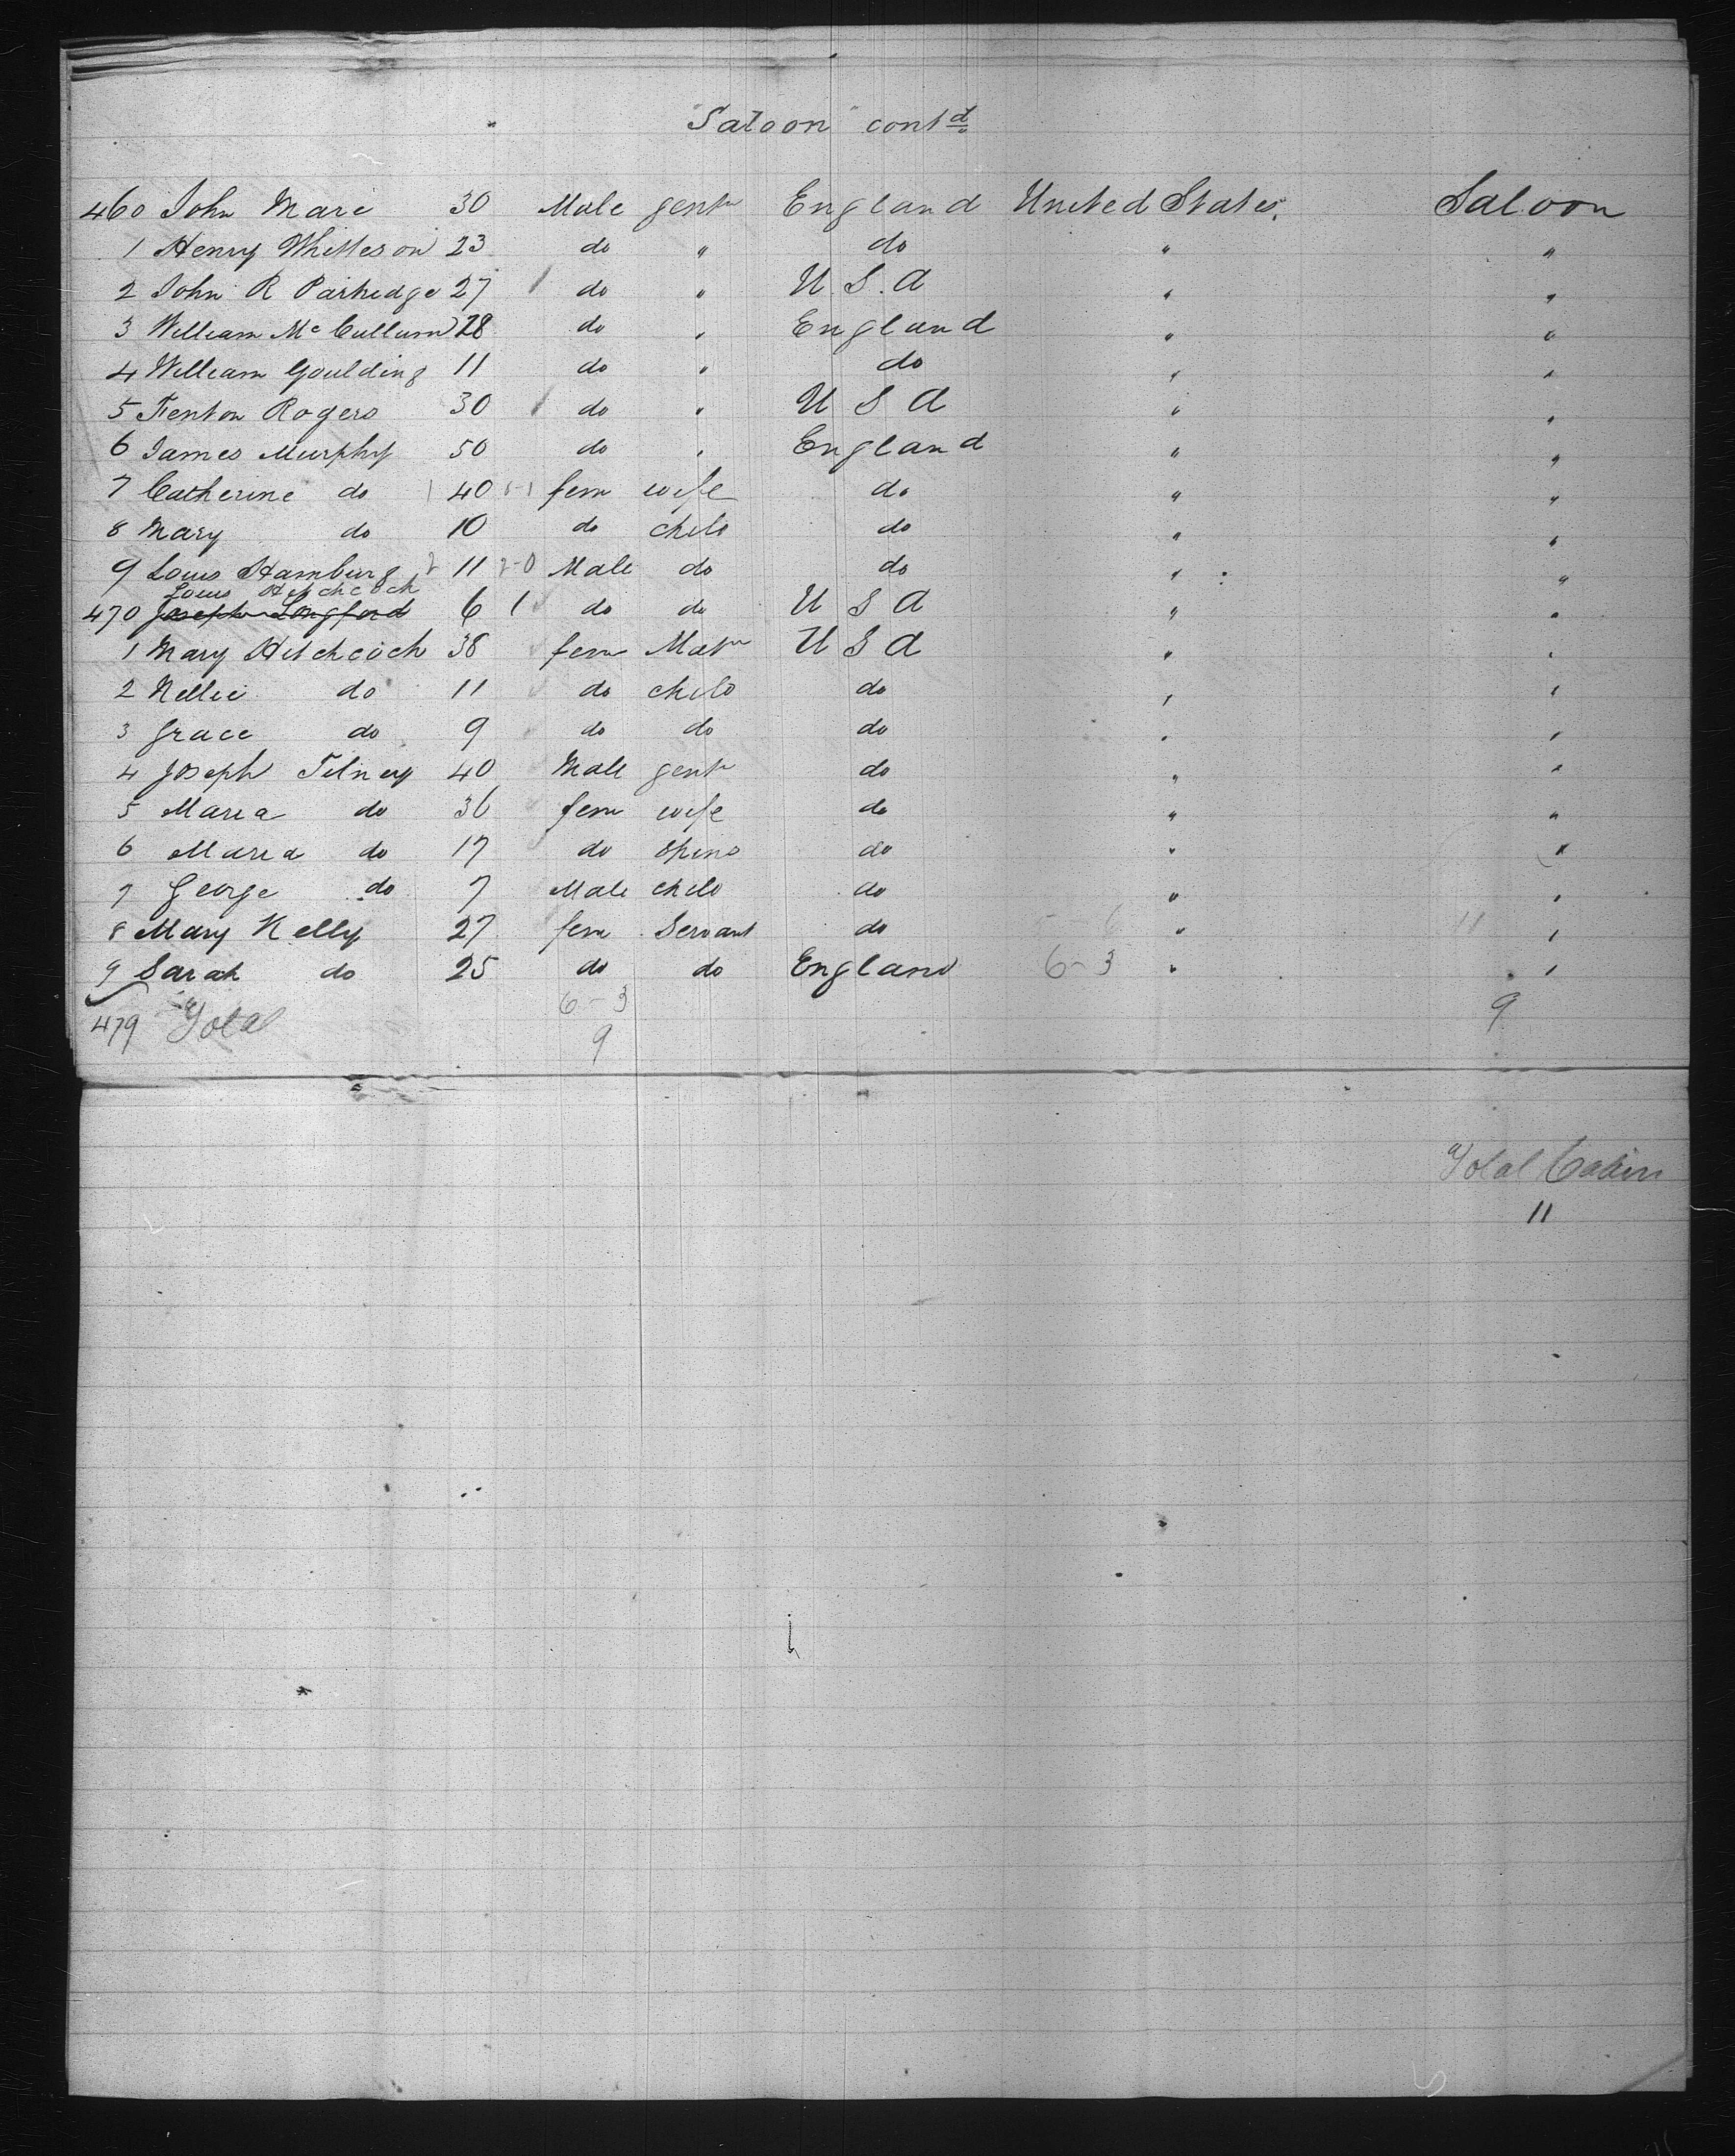 "Saloon" contd
460 John Mare 30 Male gentn England United States. Saloon
1 Henry Whitteson 23 do " do " "
2 John R Partredge 27 do " U. S. A " "
3 William McCullum 28 do " England " "
4 William Goulding 11 do " do " "
5 Fenton Rogers 30 do " U S A " "
6 James Murphy 50 do " England " "
7 Catherine do 40 fem wife do " "
8 Mary do 10 do child do " "
9 Louis Hamburg 2 11 2-0 Male do do " "
Louis Hitchcock
470 Joseph Longford 6 1 do do U S A " "
1 Mary Hitchcock 38 fem Matn U S A " "
2 Nellie do 11 do child do " "
3 Grace do 9 do do do " "
4 Joseph Tilney 40 Male gentn do " "
5 Maria do 36 fem wife do " "
6 Maria do 17 do Spins do " "
7 George do 7 Male child do " "
8 Mary Kelly 27 fem Servant do " 11 "
9 Sarah do 25 do do England 6-3 " "
479 Total 6-3 9
9
Total Cabin
11